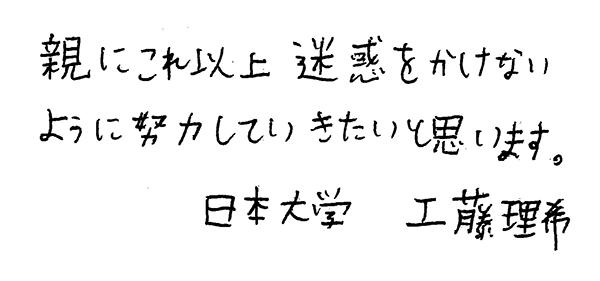 親にこれ以上迷惑をかけない
ように努力していきたいと思います。
日本大学 工藤理希